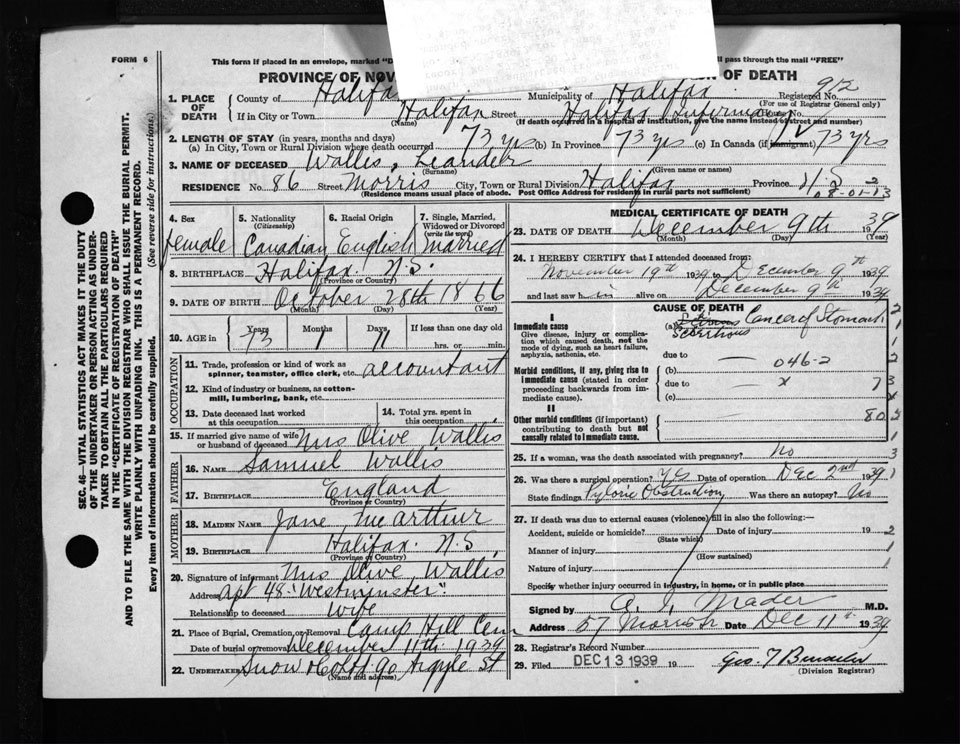 FORM 6
This form if placed in an envelope, marked "D
ll pass through the mail "FREE"
PROVINCE OF NOV
ON OF DEATH
1. PLACE OF DEATH
County of Halifax
Municipality of Halifax
Registered No. 912
(For use of Registrar General only)
If in City or Town Halifax Street Halifax Infirmary House No.
(Name) (If death occurred in a hospital or institution, give the name instead of street and number)
2. LENGTH OF STAY (in years, months and days)
(a) In City, Town or Rural Division where death occurred 73 yrs (b) In Province 73 yrs (c) In Canada (if immigrant) 73 yrs
3. NAME OF DECEASED Wallis, Leander
(Surname) (Given name or names)
RESIDENCE No. 86 Street Morris City, Town or Rural Division Halifax Province N.S.
(Residence means usual place of abode. Post Office Address for residents in rural parts not sufficient)
4. Sex female
5. Nationality (Citizenship) Canadian
6. Racial Origin English
7. Single, Married, Widowed or Divorced (write the word) Married
8. BIRTHPLACE Halifax N.S.
(Province or Country)
9. DATE OF BIRTH October 28th 1866
(Month) (Day) (Year)
10. AGE in Years 73 Months 1 Days 11 If less than one day old
hrs. or min.
OCCUPATION
11. Trade, profession or kind of work as spinner, teamster, office clerk, etc. accountant
12. Kind of industry or business, as cotton-mill, lumbering, bank, etc.
13. Date deceased last worked at this occupation
14. Total yrs. spent in this occupation
15. If married give name of wife or husband of deceased Mrs Olive Wallis
FATHER
16. NAME Samuel Wallis
17. BIRTHPLACE England
(Province or Country)
MOTHER
18. MAIDEN NAME Jane McArthur
19. BIRTHPLACE Halifax N.S.
(Province or Country)
20. Signature of informant Mrs Olive Wallis
Address Apt 48 "Westminster"
Relationship to deceased Wife
21. Place of Burial, Cremation or Removal Camp Hill Cem
Date of burial or removal December 11th 1939
22. UNDERTAKER Snow & Co Ltd 90 Argyle St
(Name and address)
MEDICAL CERTIFICATE OF DEATH
23. DATE OF DEATH December 9th 1939
(Month) (Day) (Year)
24. I HEREBY CERTIFY that I attended deceased from:
November 19th 1939 to December 9th 1939
and last saw h im alive on December 9th 1939
CAUSE OF DEATH
I
Immediate cause
Give disease, injury or complication which caused death, not the mode of dying, such as heart failure, asphyxia, asthenia, etc.
(a) Scirrhous Cancer of Stomach
due to
Morbid conditions, if any, giving rise to immediate cause (stated in order proceeding backwards from immediate cause).
(b) 046-2
due to x 7
(c)
II
Other morbid conditions (if important) contributing to death but not causally related to immediate cause. 80
25. If a woman, was the death associated with pregnancy? No
26. Was there a surgical operation? Yes Date of operation Dec 2nd 1939
State findings Pyloric Obstruction Was there an autopsy? No
27. If death was due to external causes (violence) fill in also the following:—
Accident, suicide or homicide? Date of injury 19
(State which)
Manner of injury
(How sustained)
Nature of injury
Specify whether injury occurred in industry, in home, or in public place
Signed by A. I. Mader M.D.
Address 57 Morris St Date Dec 11th 1939
28. Registrar's Record Number
29. Filed DEC 13 1939 19
(Division Registrar)
SEC. 46—VITAL STATISTICS ACT MAKES IT THE DUTY
OF THE UNDERTAKER OR PERSON ACTING AS UNDER-
TAKER TO OBTAIN ALL THE PARTICULARS REQUIRED
IN THE "CERTIFICATE OF REGISTRATION OF DEATH"
AND TO FILE THE SAME WITH THE DIVISION REGISTRAR WHO SHALL ISSUE THE BURIAL PERMIT.
WRITE PLAINLY WITH UNFADING INK. THIS IS A PERMANENT RECORD.
Every item of information should be carefully supplied. (See reverse side for instructions.)